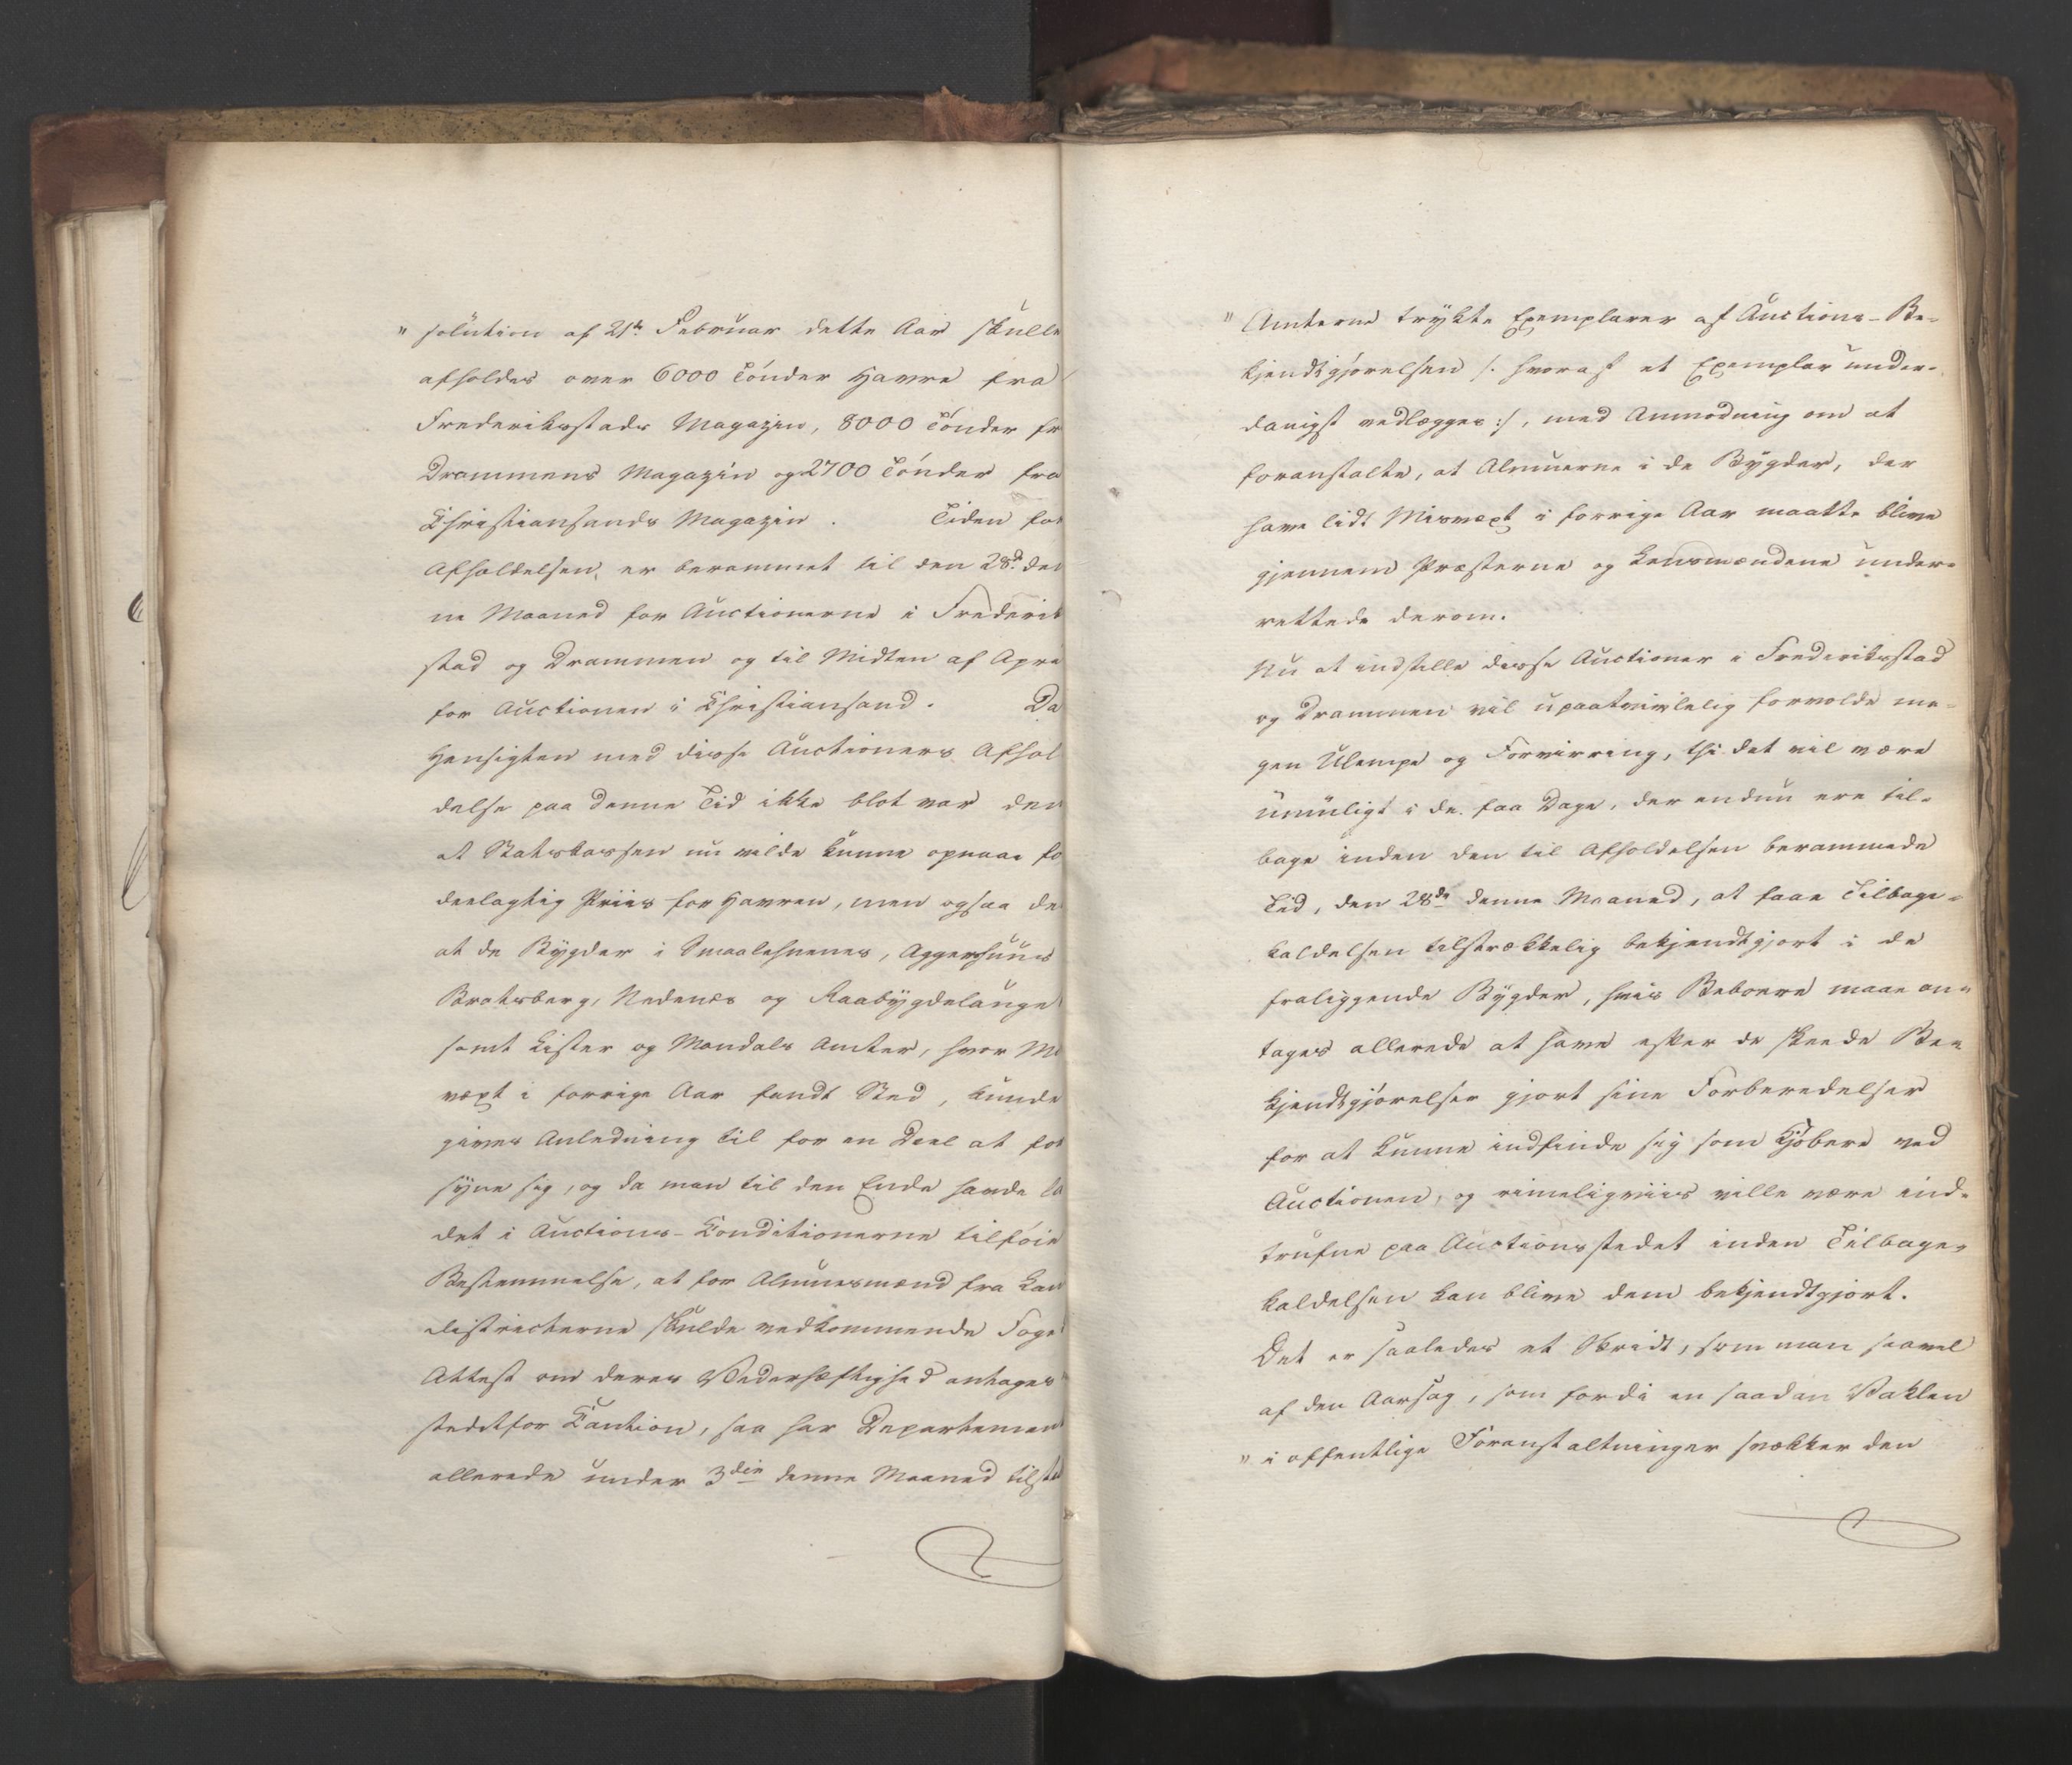 " solution af 21de Februar dette Aar skulle
afholdes over 6000 Tönder Havre fra
Frederiksstads Magazin, 8000 Tönder fr
Drammens Magazin og 2700 Tönder fra
Christiansands Magazin. Tiden for
Afholdelsen, er berammet til den 28de den
ne Maaned for Auctionerne i Frederik
stad og Drammen og til Midten af Apri
for Auctionen i Christiansand. Da
Hensigten med disse Auctioners Afhol
delse paa denne Tid ikke blot var den
at Statskassen nu vilde kunne opnaae fo
deelagtig Priis for Havren, men ogsaa de
at de Bygder i Smaalehnenes, Aggershuus
Bratsberg, Nedenes og Raabygdelauget
samt Lister og Mandals Amter, hvor Mi
vext i forrige Aar fandt Sted, kunde
gives Anledning til for en Deel at for
syne sig, og da man til den Ende havde la
det i Auctions-Conditionerne tilföie
Bestemmelse, at for Almuesmænd fra Lan
districterne skulde vedkommende Foge
Attest om deres Vederhæftighed antages
stedetfor Caution, saa har Departement
allerede under 3die denne Maaned tilst
" Amterne trykte Exemplarer af Auctions-Be-
kjendtgjörelsen /: hvoraf et Exemplar under-
danigst vedlægges :/, med Anmodning om at
foranstalte, at Almuerne i de Bygder, der
have lidt Misvext i forrige Aar maatte blive
gjennem Præsterne og Lensmændene under-
rettede derom.
Nu at indstille disse Auctioner i Frederiksstad
og Drammen vil upaatvivlelig forvolde me-
gen Ulempe og Forvirring, thi det vil være
umuligt i de faa Dage, der endnu ere til-
bage inden den til Afholdelsen berammede
Tid, den 28de denne Maaned, at faae Tilbage-
kaldelsen tilstrækkelig bekjendtgjort i de
fraliggende Bygder, hvis Beboere maae an-
tages allerede at have efter de skeede Be-
kjendtgjörelser gjort sine Forberedelser
for at kunne indfinde sig som Kjöbere ved
Auctionen, og rimeligviis ville være ind-
trufne paa Auctionsstedet inden Tilbage-
kaldelsen kan blive dem bekjendtgjort.
Det er saaledes et Skridt, som man saavel
af den Aarsag, som fordi en saadan Vaklen
" i offentlige Foranstaltninger svækker den